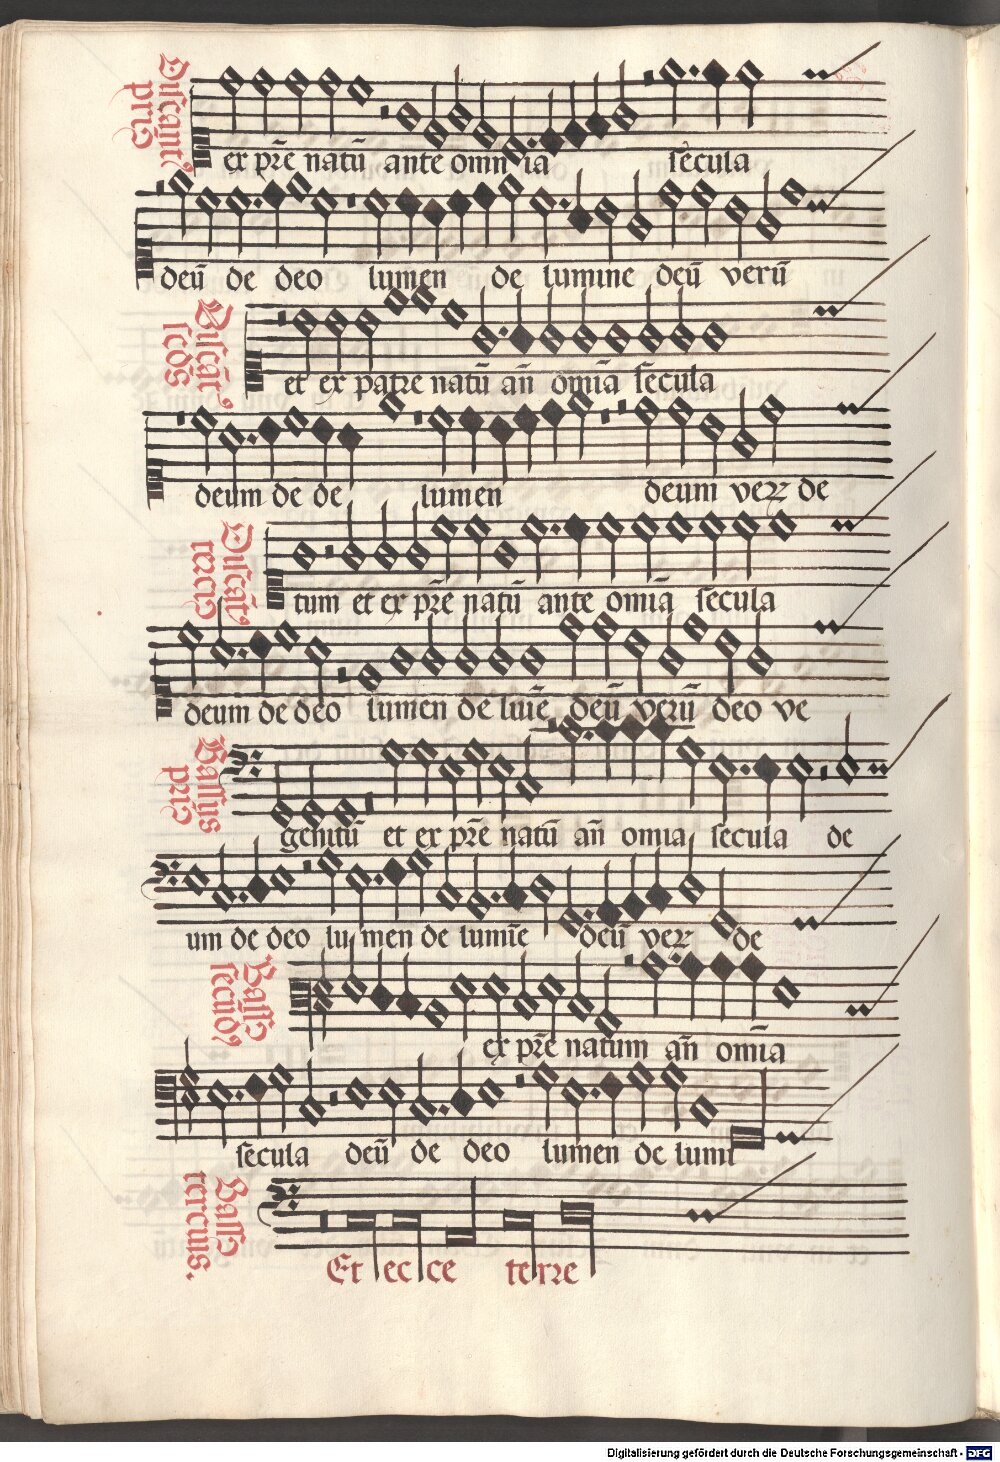 Discant⁹ pri⁹
ex pr̄e natū ante omn ia secula
deū de deo lumen de lumine deū verū
Discāt⁹ scd̄s
et ex patre natū an̄ om̄ia secula
deum de de lumen deum verꝝ de
Discāt⁹ terci⁹
tum et ex pr̄e natū ante om̄ia secula
deum de deo lumen de lūīe deū verū deo ve
Bassus pri⁹
genitū et ex pr̄e natū an̄ omia secula de
um de deo lu men de lumīe deū verꝝ de
Bass⁹ secūd⁹
ex pr̄e natum an̄ om̄ia
secula deū de deo lumen de lumi
Bass⁹ tercius.
Et ec ce terre
Digitalisierung gefördert durch die Deutsche Forschungsgemeinschaft - DFG